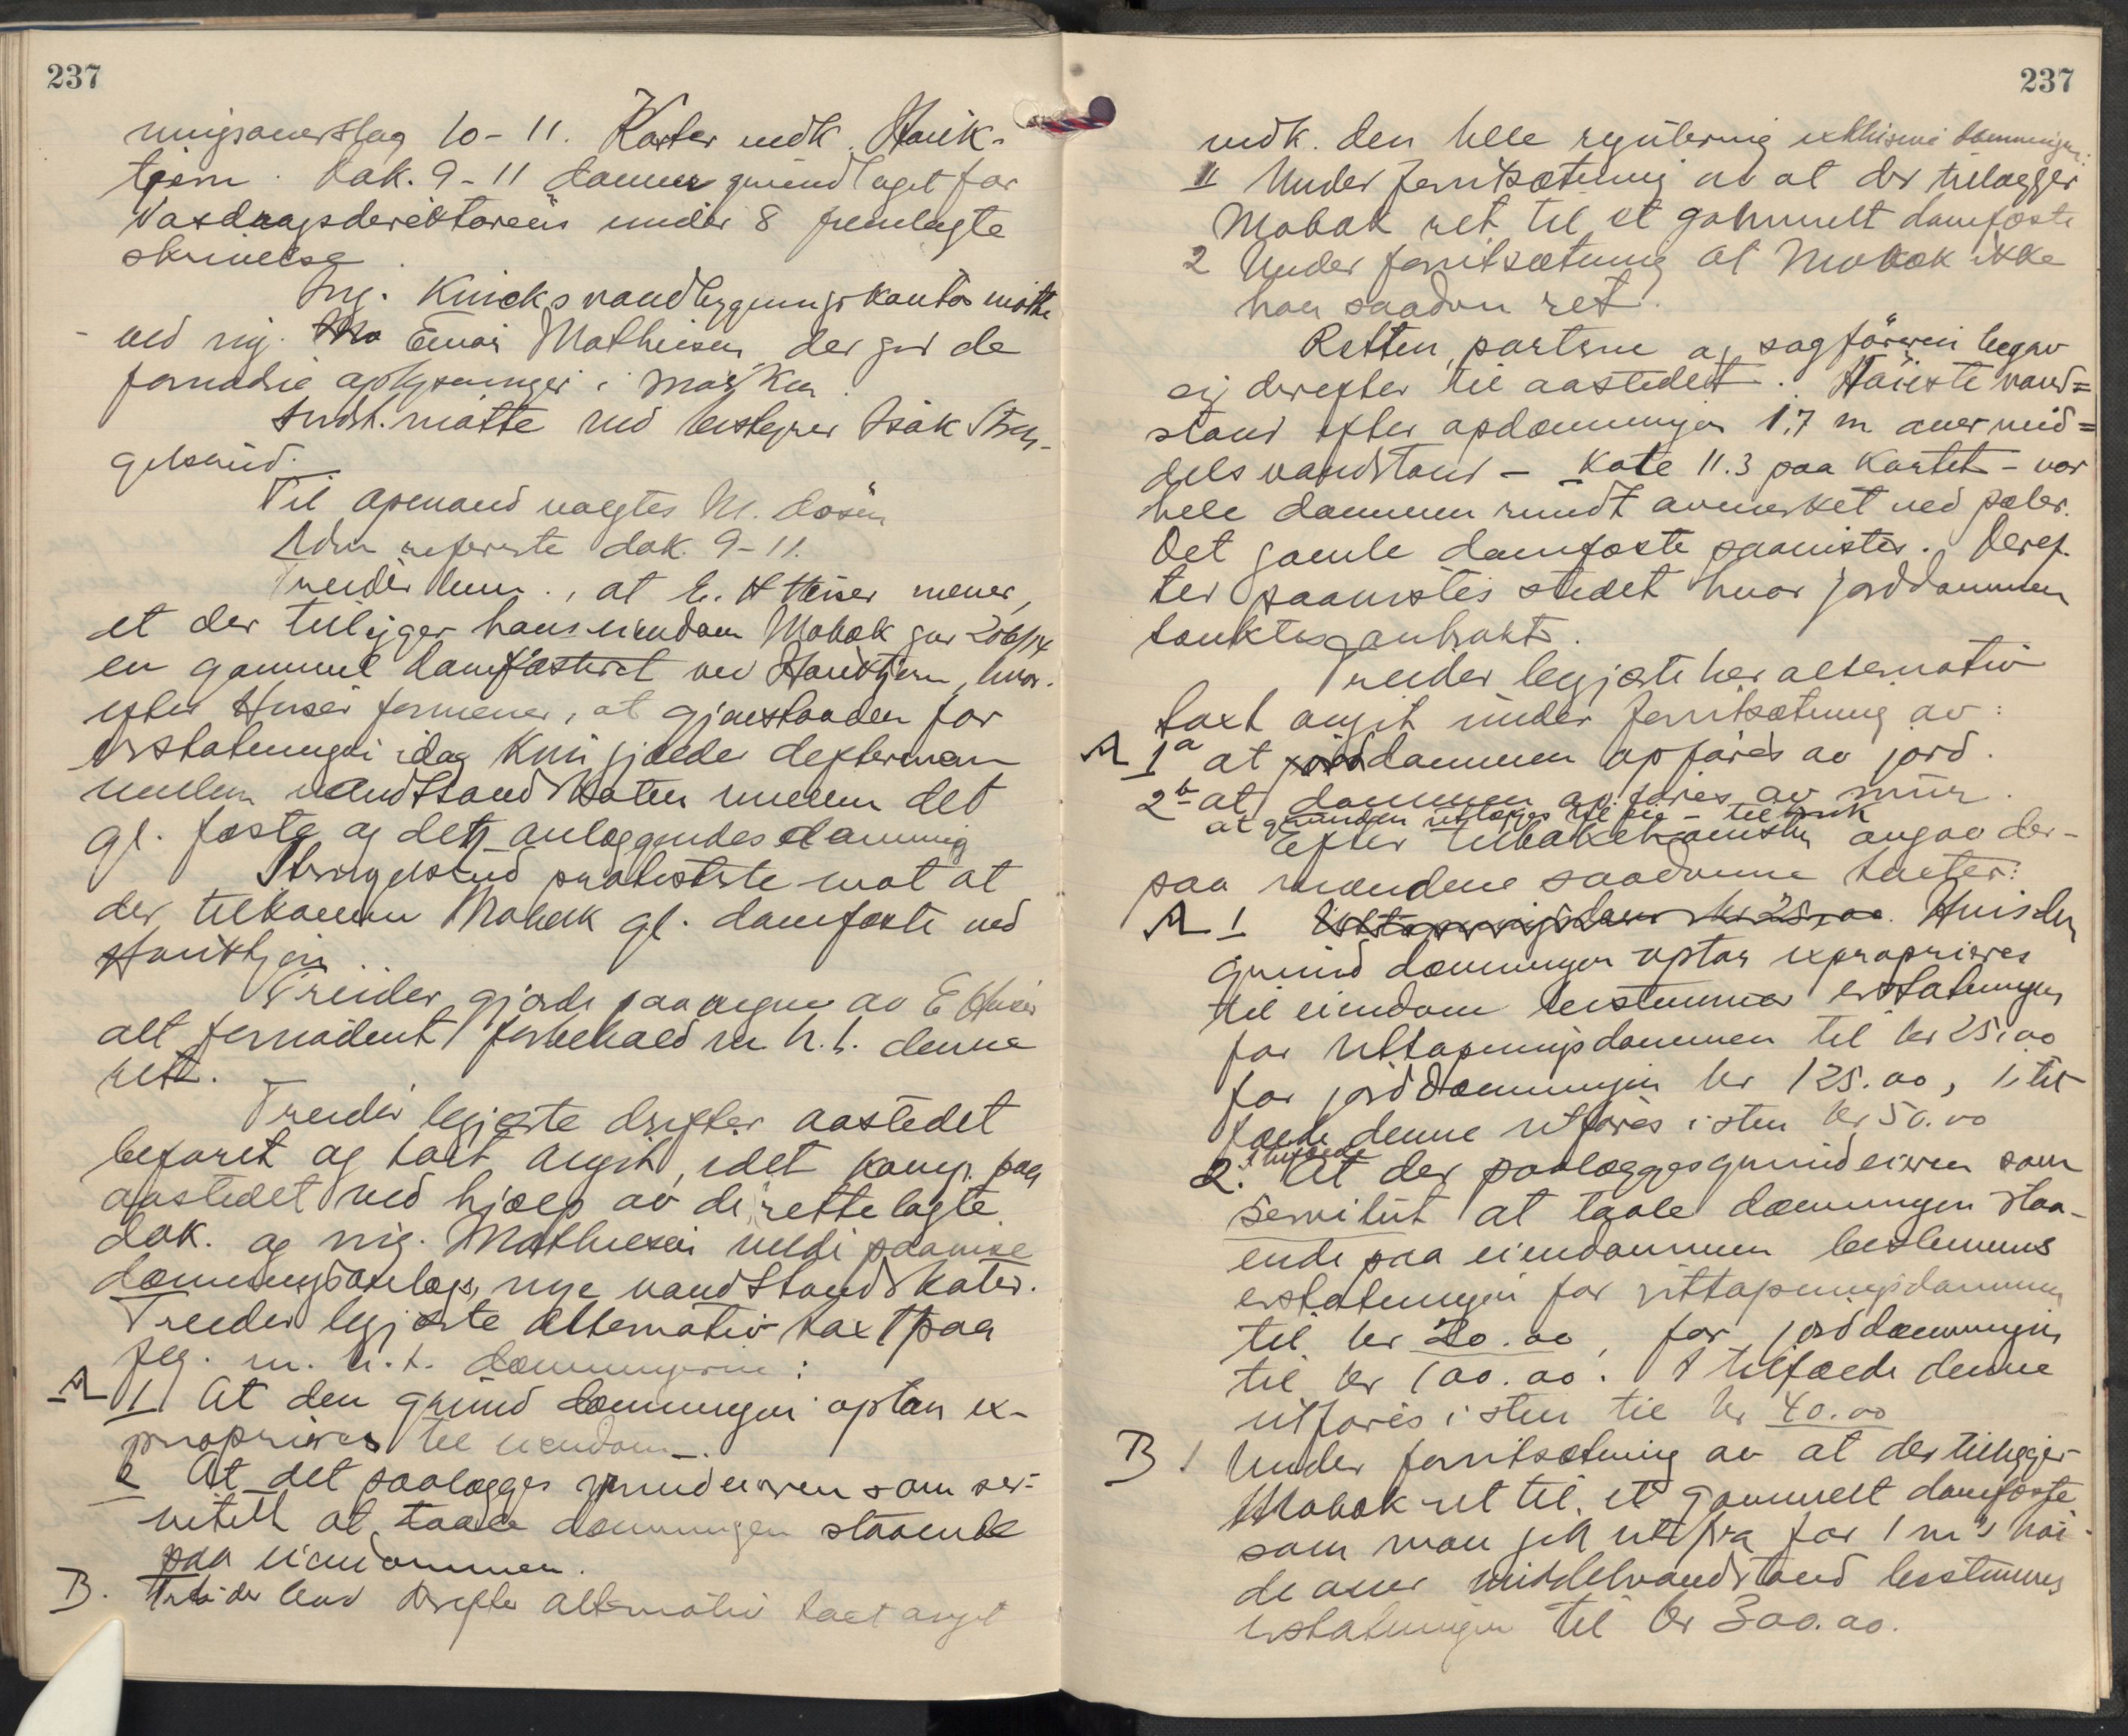 237
ningsoverslag 10-11. Karter vedk. Hauk-
tjern. Dok. 9-11 danner grundlaget for
Vasdragsdirektørens under 8 fremlagte
skrivelse.
Ing. Kincks vandbygningskontor møtte
ved ing. Einar Mathiesen der gav de
fornødne oplysninger i marken.
Indst. møtte ved bestyrer Isak Stry-
gelsrud.
Til opmand valgtes M. Løsen
Adm refererte dok. 9-11.
Treider bem., at E. Huser mener,
at der tilligger hans eiendom Mobæk gnr 206/14
en gammel damfæsteret ved Hauktjern, hvor-
efter Huser formener, at gjenstanden for
erstatningen idag kun gjælder differencen
mellem vandstandskoten mellem det
gl. fæste og den anlæggendes dæmning
Strygelsrud protesterte mot at
der tilkommer Mobæk gl. damfæste ved
Hauktjern.
Treider gjorde paa vegne av E Huser
alt fornødent forbehold m. h. t. denne
rett.
Treider begjærte derefter aastedet
befaret og takst avgit, idet komp. paa
aastedet ved hjælp av de rettelagte
dok. og ing. Mathiesen vilde paavise
dæmningsanlægs, nye vandstandskoter.
Treider begjærte alternativ taxt paa
flg. m. h. t. dæmningerne:
A 1 At den grund dæmningen optar ex-
proprieres til eiendom.
2 At det paalægges grundeieren som ser-
vitut at taale dæmningen staaende
paa eiendommen.
B. Treider bad derefter alternativ taxt avgit
237
vedk. den hele regulering exklusive dæmningen:
1 Under forutsætning av at der tillægger
Mobæk ret til et gammelt damfæste
2 Under forutsætning at Mobæk ikke
har saadan ret.
Retten, parterne og sagførerne begav
sig derefter til aastedet. Høieste vand=
stand efter opdæmningen 1,7 m over mid=
dels vandstand - Kote 11.3 paa kartet - var
hele dammen rundt avmerket ved pæler.
Det gamle damfæste paavistes. Deref-
ter paavistes stedet hvor jorddammen
tænktes anbragt.
Treider begjærte her alternativ
taxt avgit under forutsætning av:
A 1a at dammen opføres av jord.
2b at dammen opføres av mur.
at grunden utlægges til eie - til bruk
Efter tilbakekomsten avgav der-
paa mændene saadanne taxter:
A 1 Uttapningsdam kr 25,00. Hvis den
grund dæmningen optar exproprieres
til eiendom bestemmes erstatningen
for uttapningsdammen til kr 25,00
for jorddæmningen kr 125.00, i til-
fælde denne utføres i sten kr 50.00
I tilfælde
2. At der paalægges grundeieren som
servitut at taale dæmningen staa-
ende paa eiendommen bestemmes
erstatningen for uttapningsdammen
til kr 20.00, for jorddæmningen
til kr 100.00. I tilfælde denne
utføres i sten til kr 40.00
B 1 Under forutsætning av at der tilligger
Mobæk ret til et gammelt damfæste
som man gik ut fra for 1 m's høi-
de over middelvandstand bestemmes
erstatningen til kr 300.00.